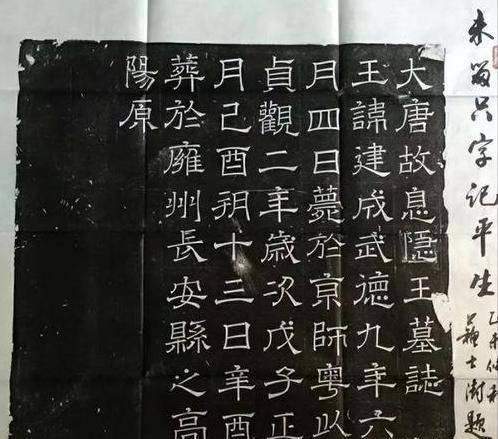 未留只字记平生
乙未仲秋
蘇士澍题
大唐故息隱王墓誌
王諱建成武德九年六
月四日薨於京師粵以
貞觀二年歲次戊子正
月己酉朔十三日辛酉
葬於雍州長安縣之高
陽原